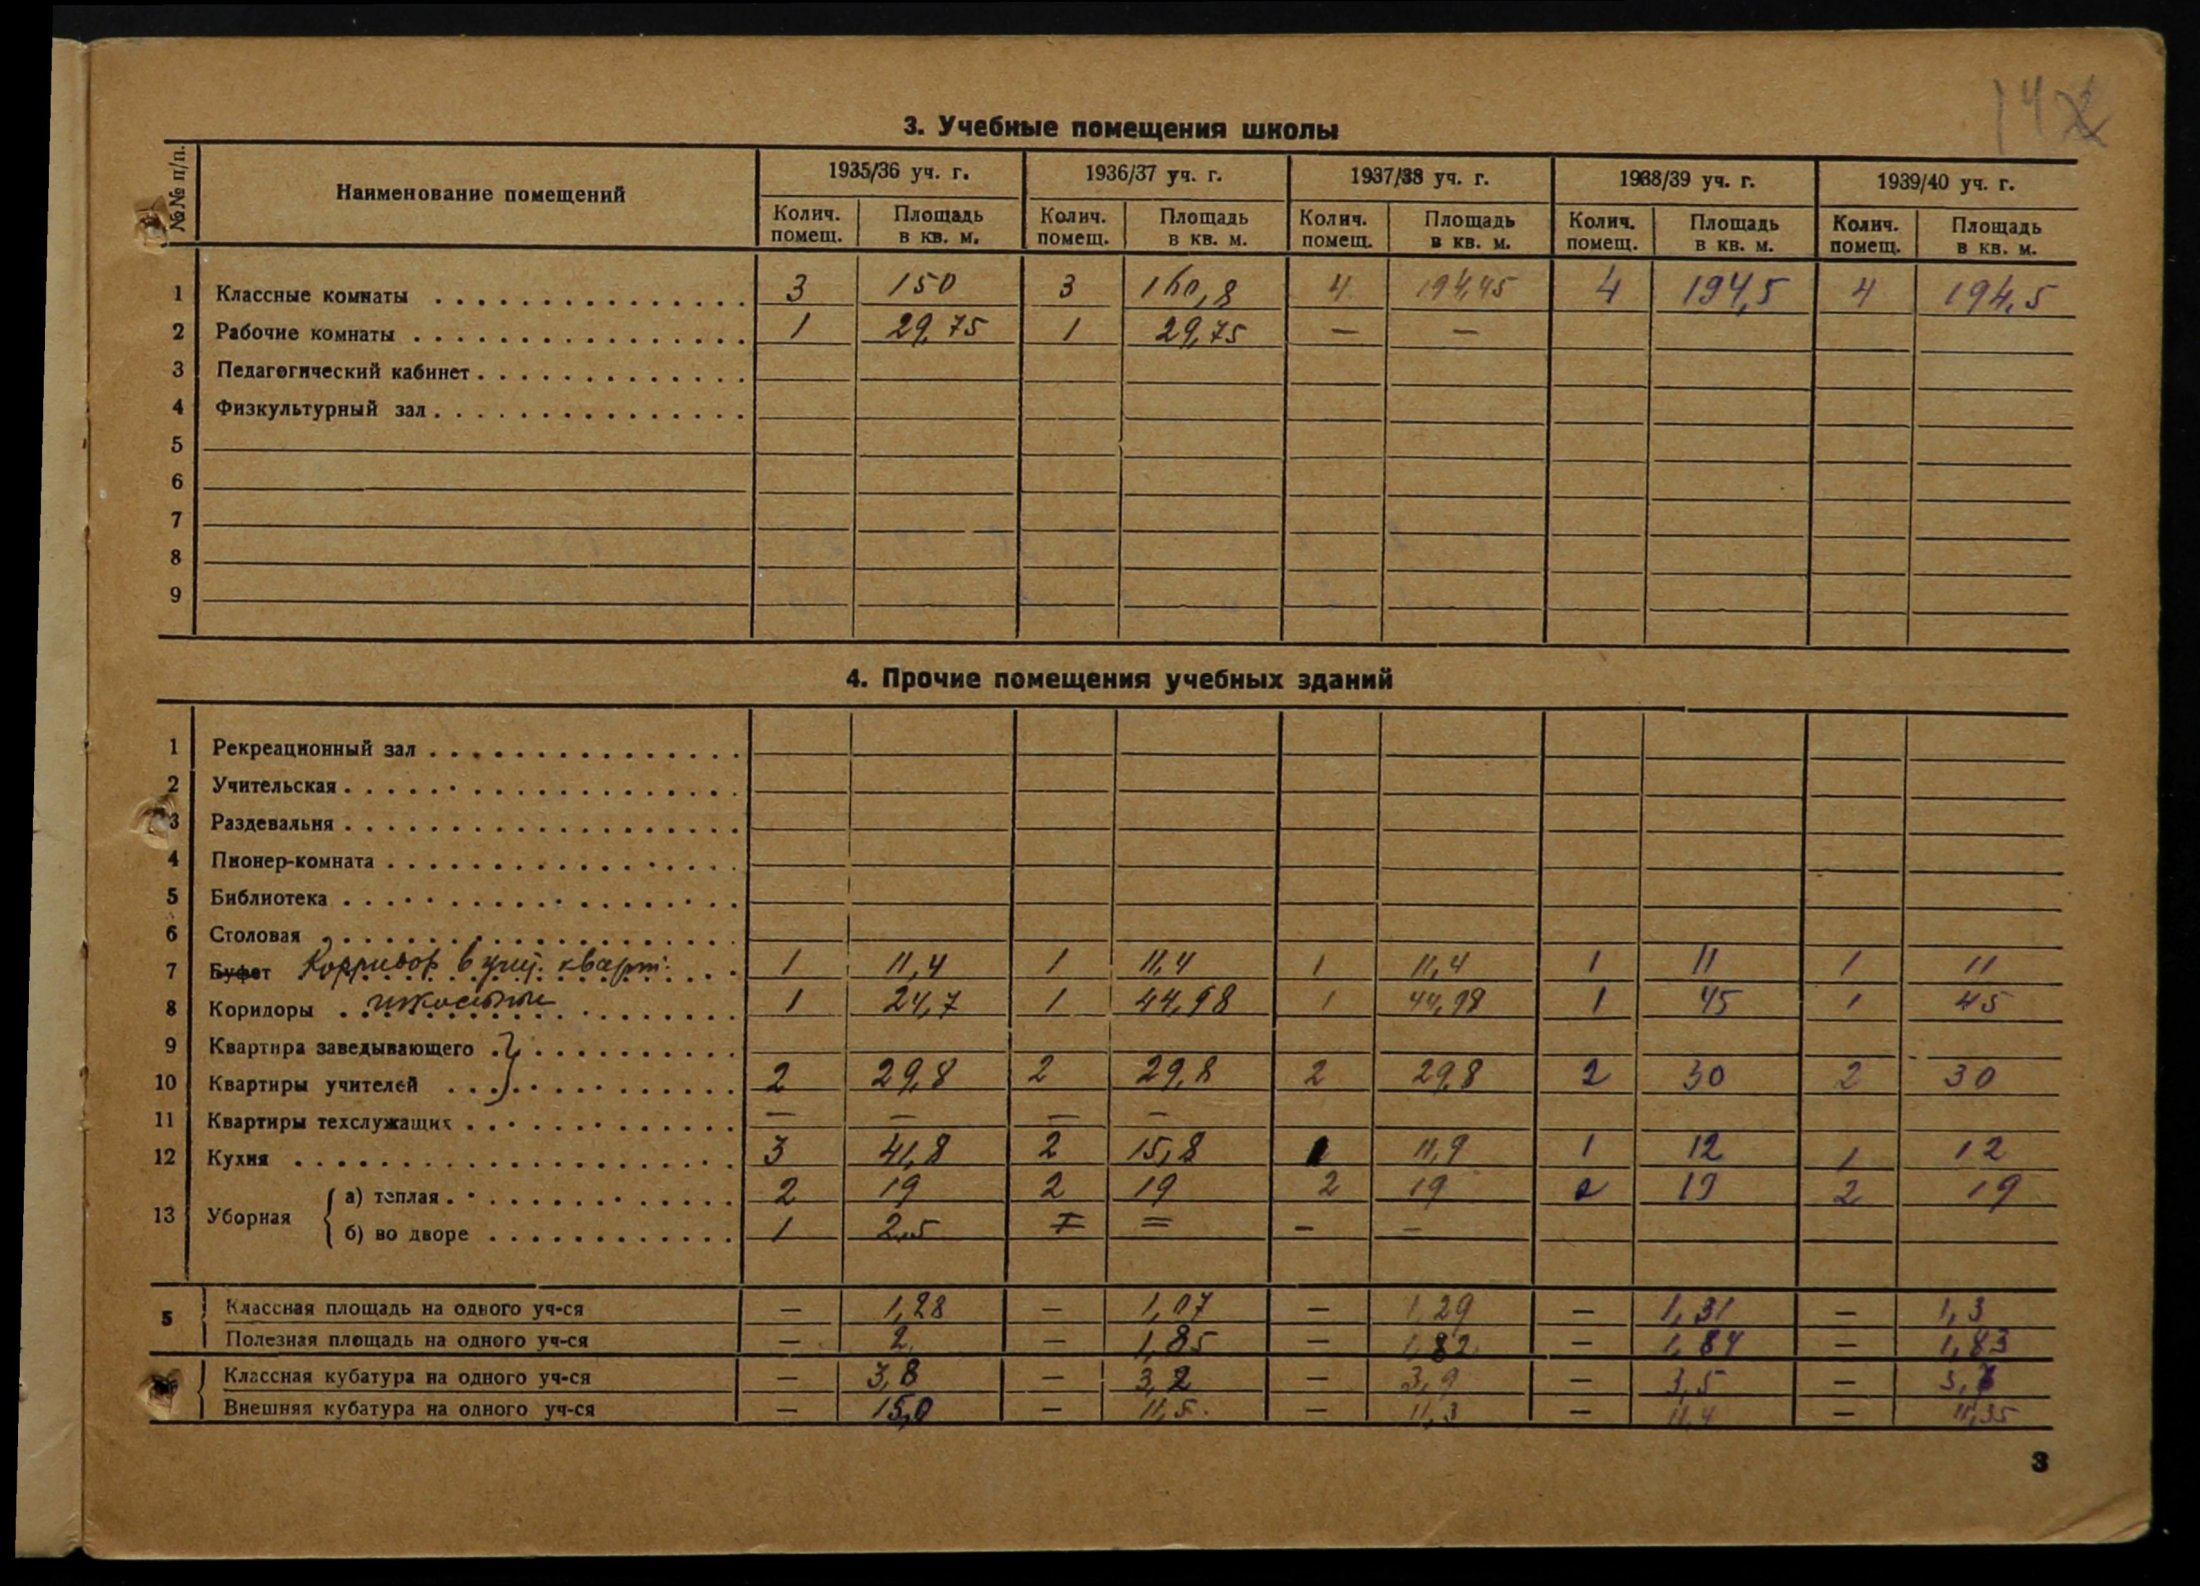 14
3. Учебные помещения школы
№№ п/п. Наименование помещений 1935/36 уч. г. 1936/37 уч. г. 1937/38 уч. г. 1938/39 уч. г. 1939/40 уч. г.
Колич. помещ. Площадь в кв. м. Колич. помещ. Площадь в кв. м. Колич. помещ. Площадь в кв. м. Колич. помещ. Площадь в кв. м. Колич. помещ. Площадь в кв. м.
1 Классные комнаты 3 150 3 160,8 4 194,45 4 194,5 4 194,5
2 Рабочие комнаты 1 29,75 1 29,75 — —
3 Педагогический кабинет
4 Физкультурный зал
5
6
7
8
9
4. Прочие помещения учебных зданий
1 Рекреационный зал
2 Учительская
3 Раздевальня
4 Пионер-комната
5 Библиотека
6 Столовая
7 Буфет Корридор в уч. кварт. 1 11,4 1 11,4 1 11,4 1 11 1 11
8 Коридоры школьный 1 24,7 1 44,98 1 44,98 1 45 1 45
9 Квартира заведывающего
10 Квартиры учителей 2 29,8 2 29,8 2 29,8 2 30 2 30
11 Квартиры техслужащих — — — —
12 Кухня 3 41,8 2 15,8 1 11,9 1 12 1 12
13 Уборная а) теплая 2 19 2 19 2 19 2 19 2 19
б) во дворе 1 2,5 = — —
5 Классная площадь на одного уч-ся — 1,28 — 1,07 — 1,29 — 1,31 — 1,3
Полезная площадь на одного уч-ся — 2, — 1,85 — 1,82 — 1,84 — 1,83
Классная кубатура на одного уч-ся — 3,8 — 3,2 — 3,9 — 3,5 —
Внешняя кубатура на одного уч-ся — 15,0 — 11,5 — 11,3 — 11,4 — 11,35
3